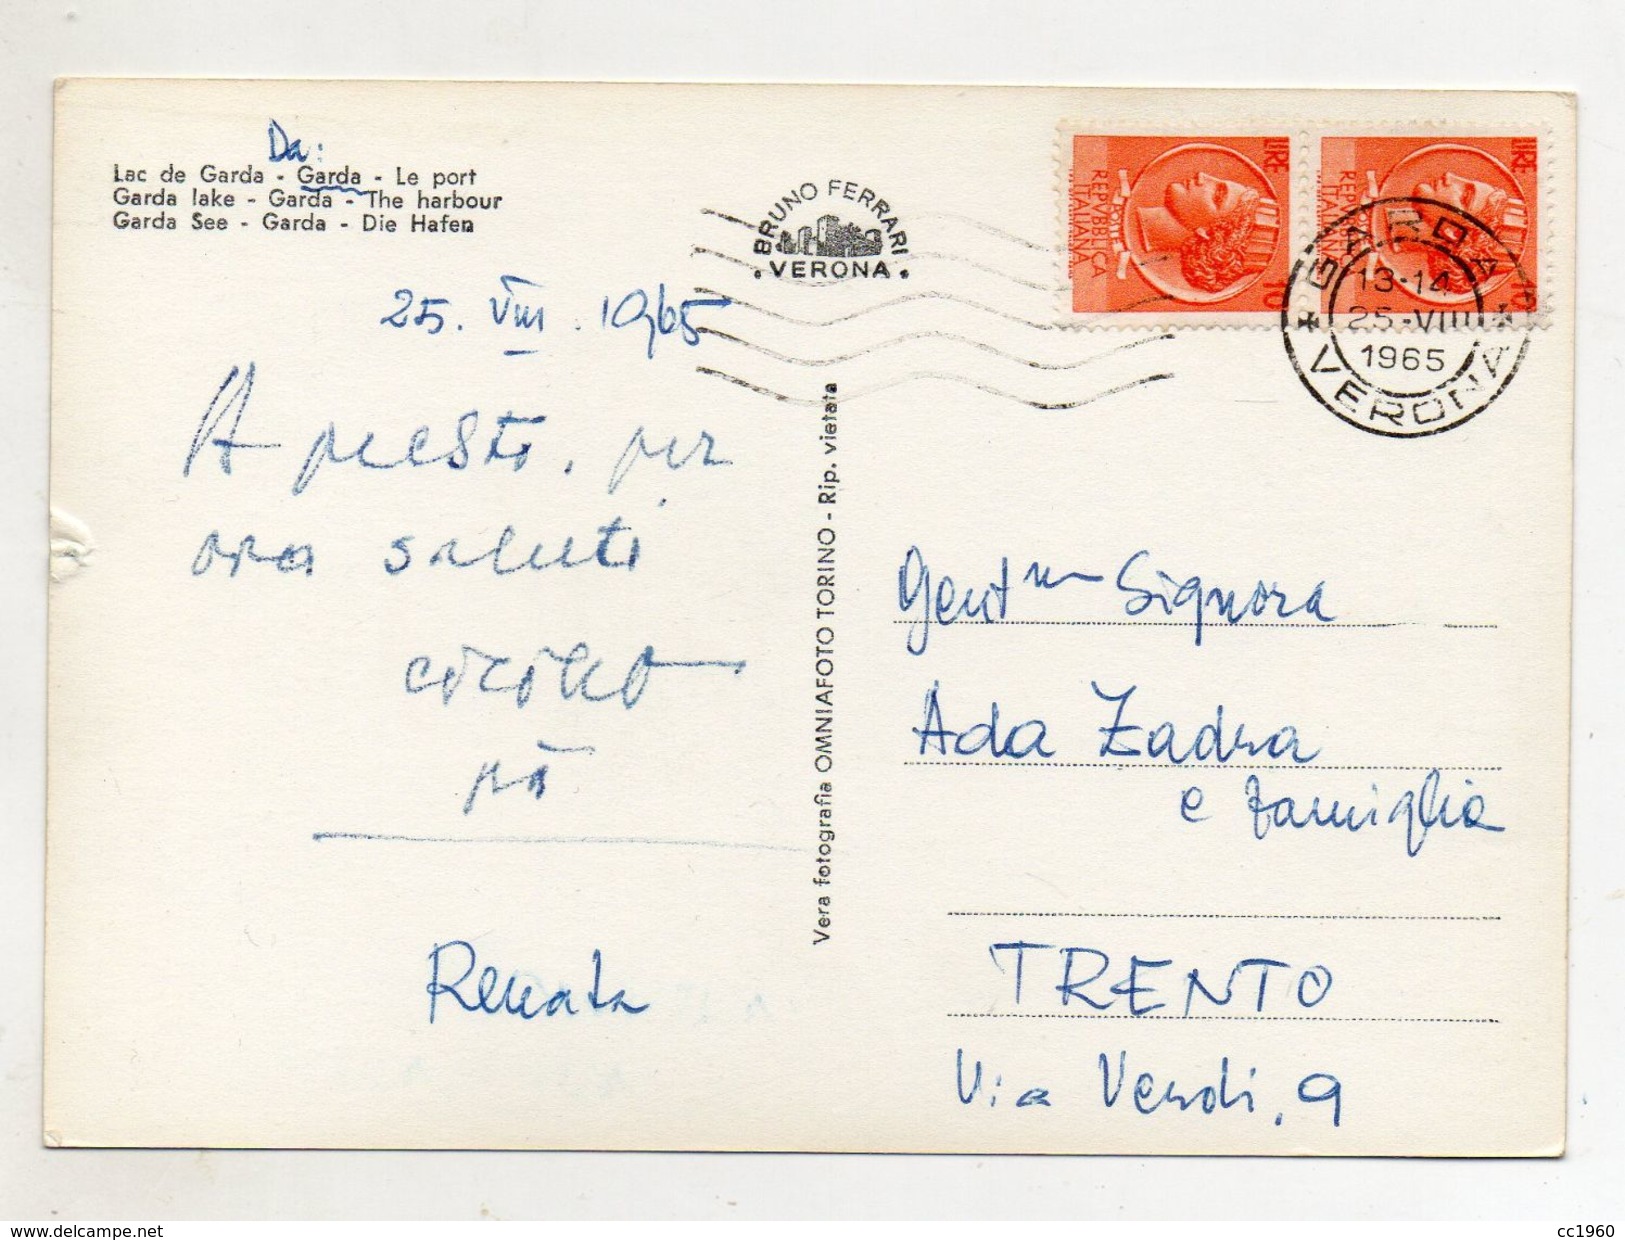 Da:
Lac de Garda - Garda - Le port
Garda lake - Garda - The harbour
Garda See - Garda - Die Hafen
25. VIII. 1965
A presto, per
ora saluti
Renata
BRUNO FERRARI
• VERONA •
Vera fotografia OMNIAFOTO TORINO - Rip. vietata
LIRE
REPUBBLICA
ITALIANA
10
LIRE
REPUBBLICA
ITALIANA
10
GARDA
13-14
25-VIII
1965
VERONA
Gent ma Signora
Ada Zadra
e famiglia
TRENTO
Via Verdi, 9
www.delcampe.net
cc1960